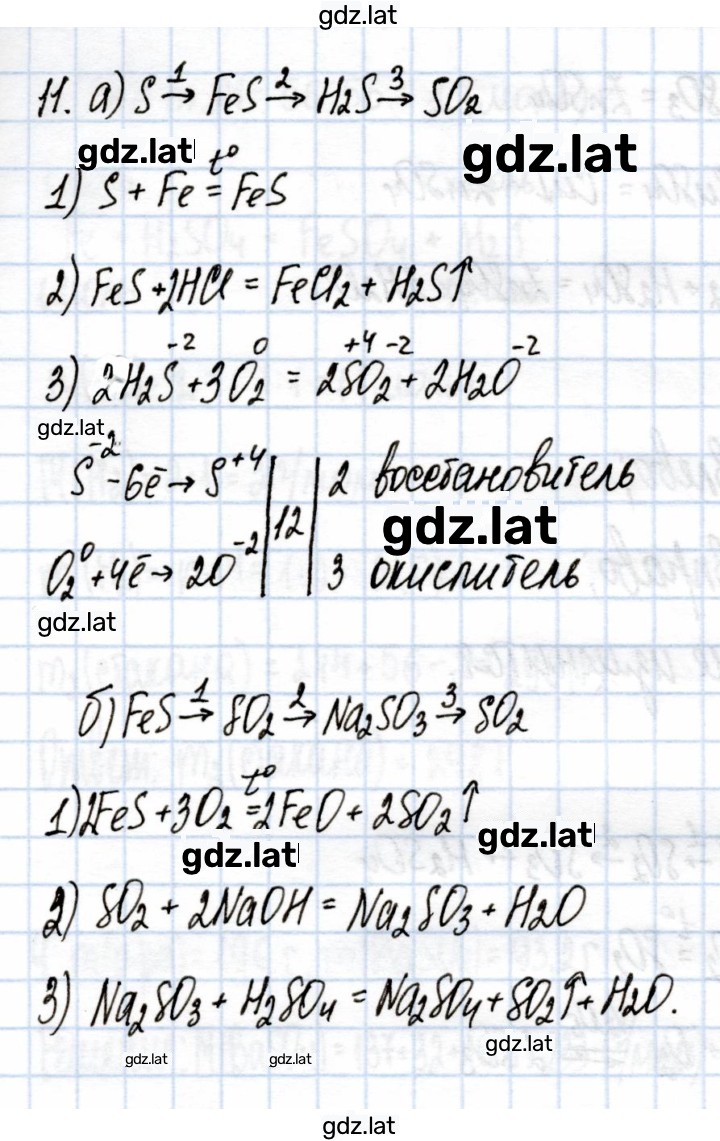 gdz.lat
11. а) S →¹ FeS →² H₂S →³ SO₂
gdz.lat gdz.lat
1) S + Fe =tº FeS
2) FeS + 2HCl = FeCl₂ + H₂S↑
3) 2H₂S⁻² + 3O₂⁰ = 2S⁺⁴O₂⁻² + 2H₂O⁻²
gdz.lat
S⁻² - 6ē → S⁺⁴ | | 2 восстановитель
12 gdz.lat
O₂⁰ + 4ē → 2O⁻² | | 3 окислитель
gdz.lat
б) FeS →¹ SO₂ →² Na₂SO₃ →³ SO₂
1) 2FeS + 3O₂ =tº 2FeO + 2SO₂↑
gdz.lat gdz.lat
2) SO₂ + 2NaOH = Na₂SO₃ + H₂O
3) Na₂SO₃ + H₂SO₄ = Na₂SO₄ + SO₂↑ + H₂O.
gdz.lat gdz.lat gdz.lat
gdz.lat